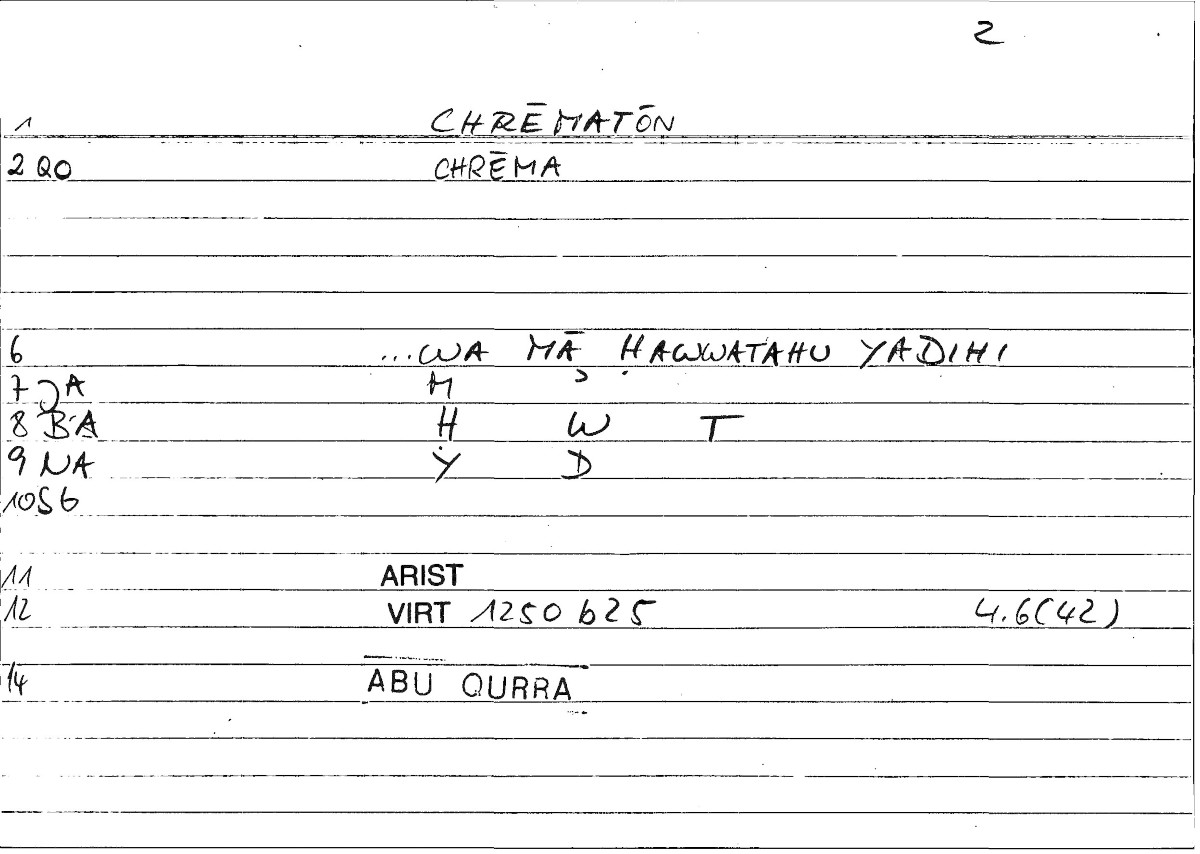 2
1 CHRĒMATŌN
2 QO CHRĒMA
6 ...WA MĀ ḤAWWATAHU YADIHI
7 JA M ʾ
8 BA Ḥ W T
9 NA Y D
10 S6
11 ARIST
12 VIRT 1250 b25 4.6(42)
14 ABU QURRA